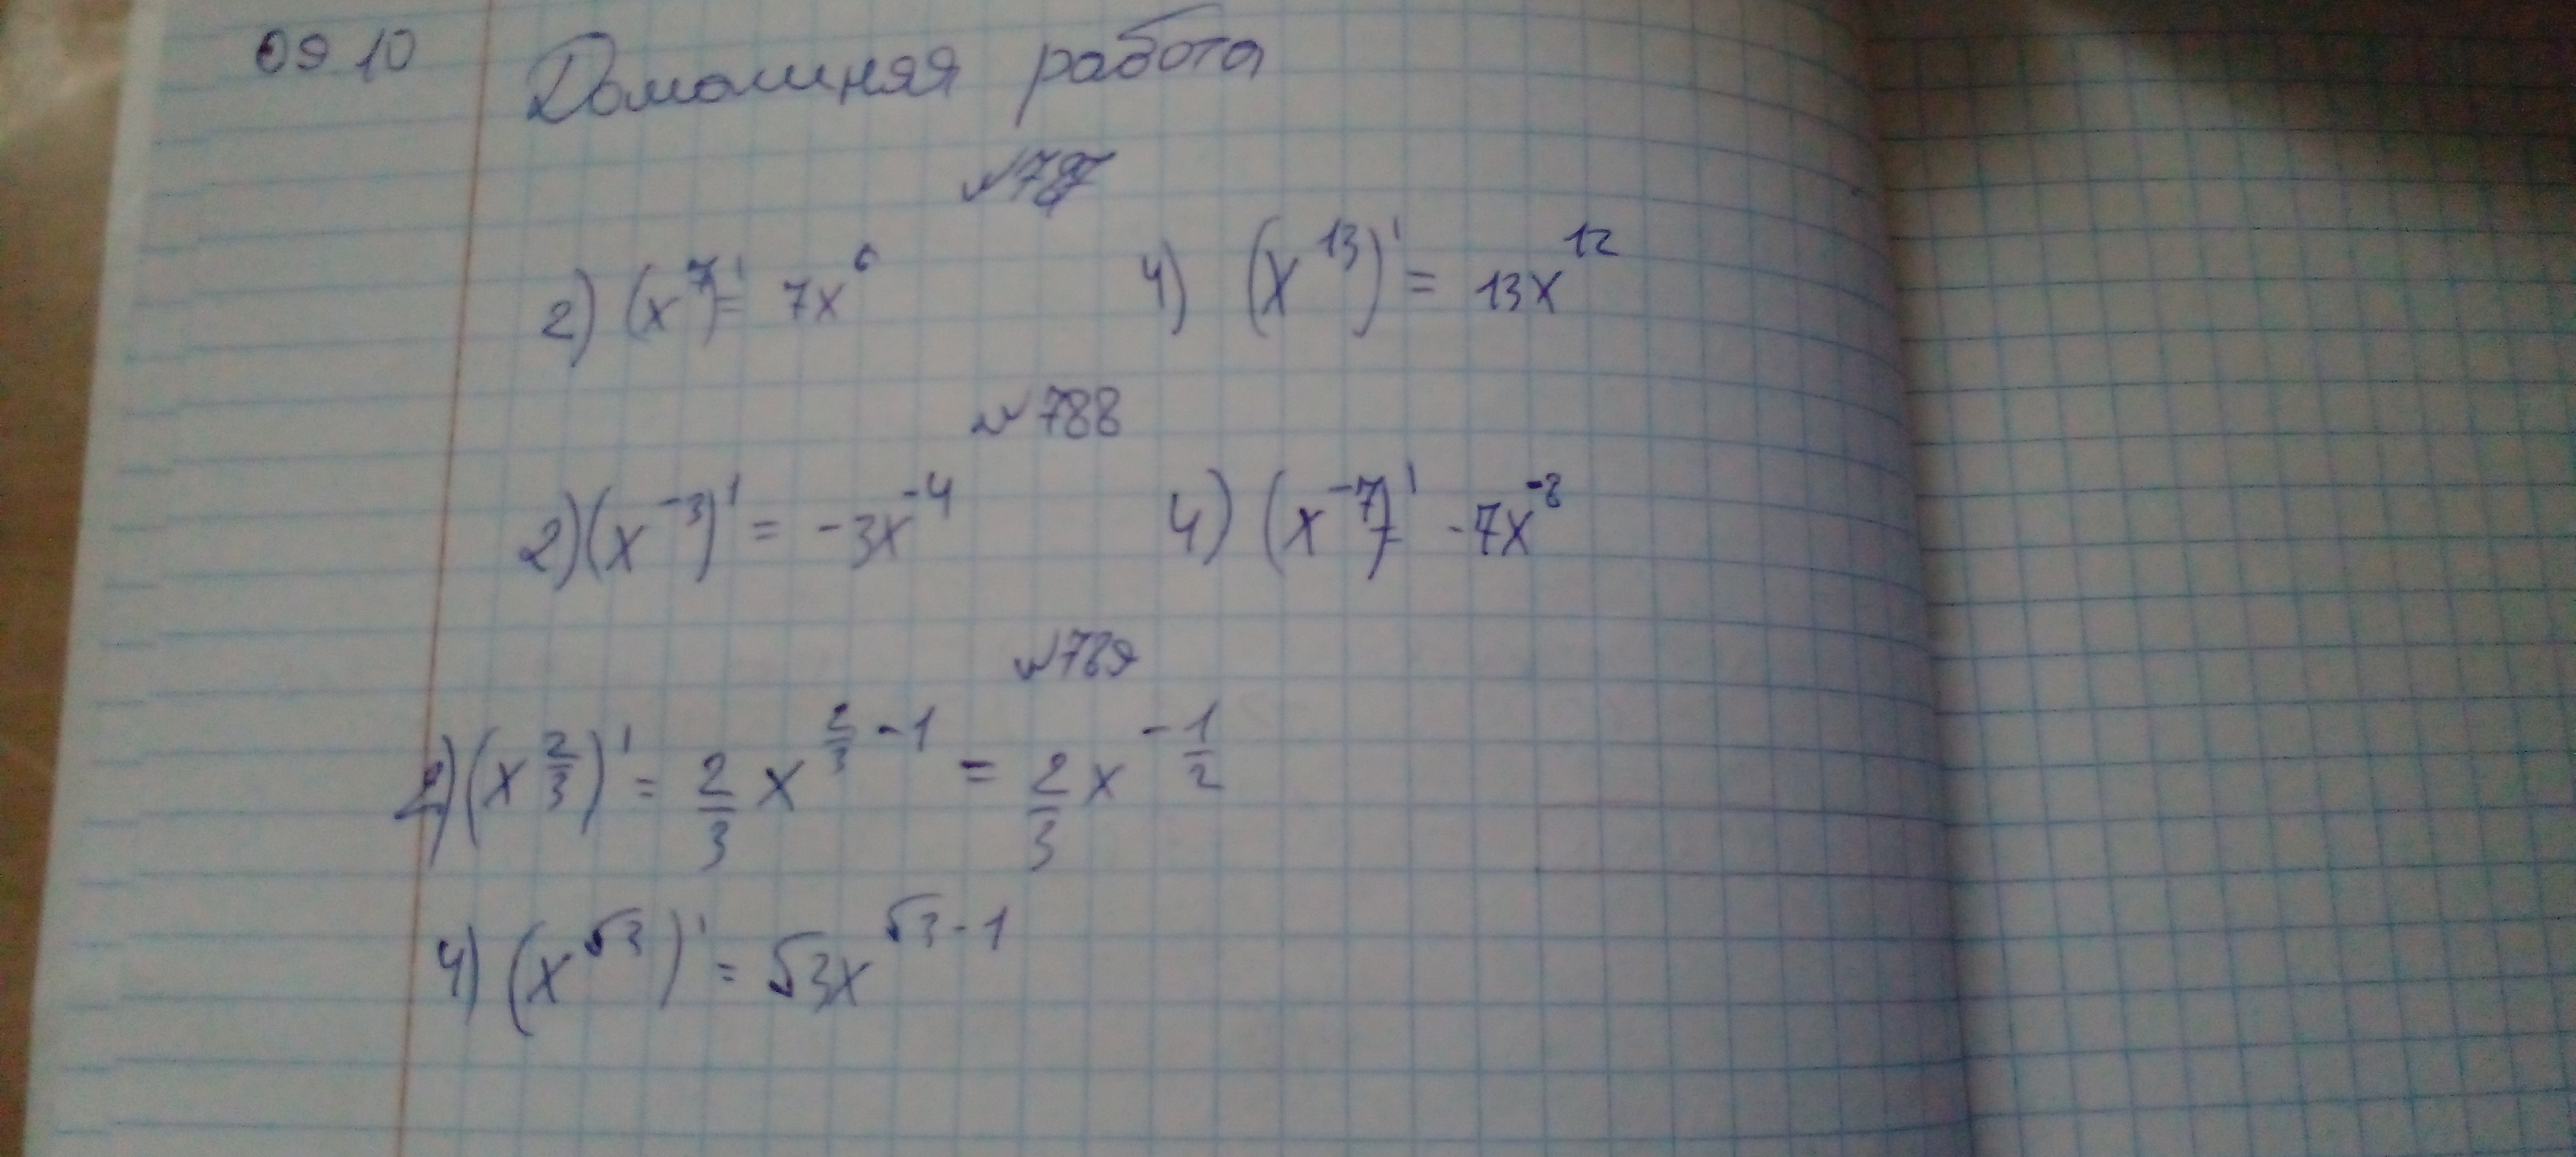 09 10
Домашняя работа
№787
2) (x^7)' = 7x^6 4) (x^13)' = 13x^12
№788
2) (x^-3)' = -3x^-4 4) (x^-7)' = -7x^-8
№789
2) (x^2/3)' = 2/3 x^2/3 - 1 = 2/3 x^-1/2
4) (x^√3)' = √3x^√3-1